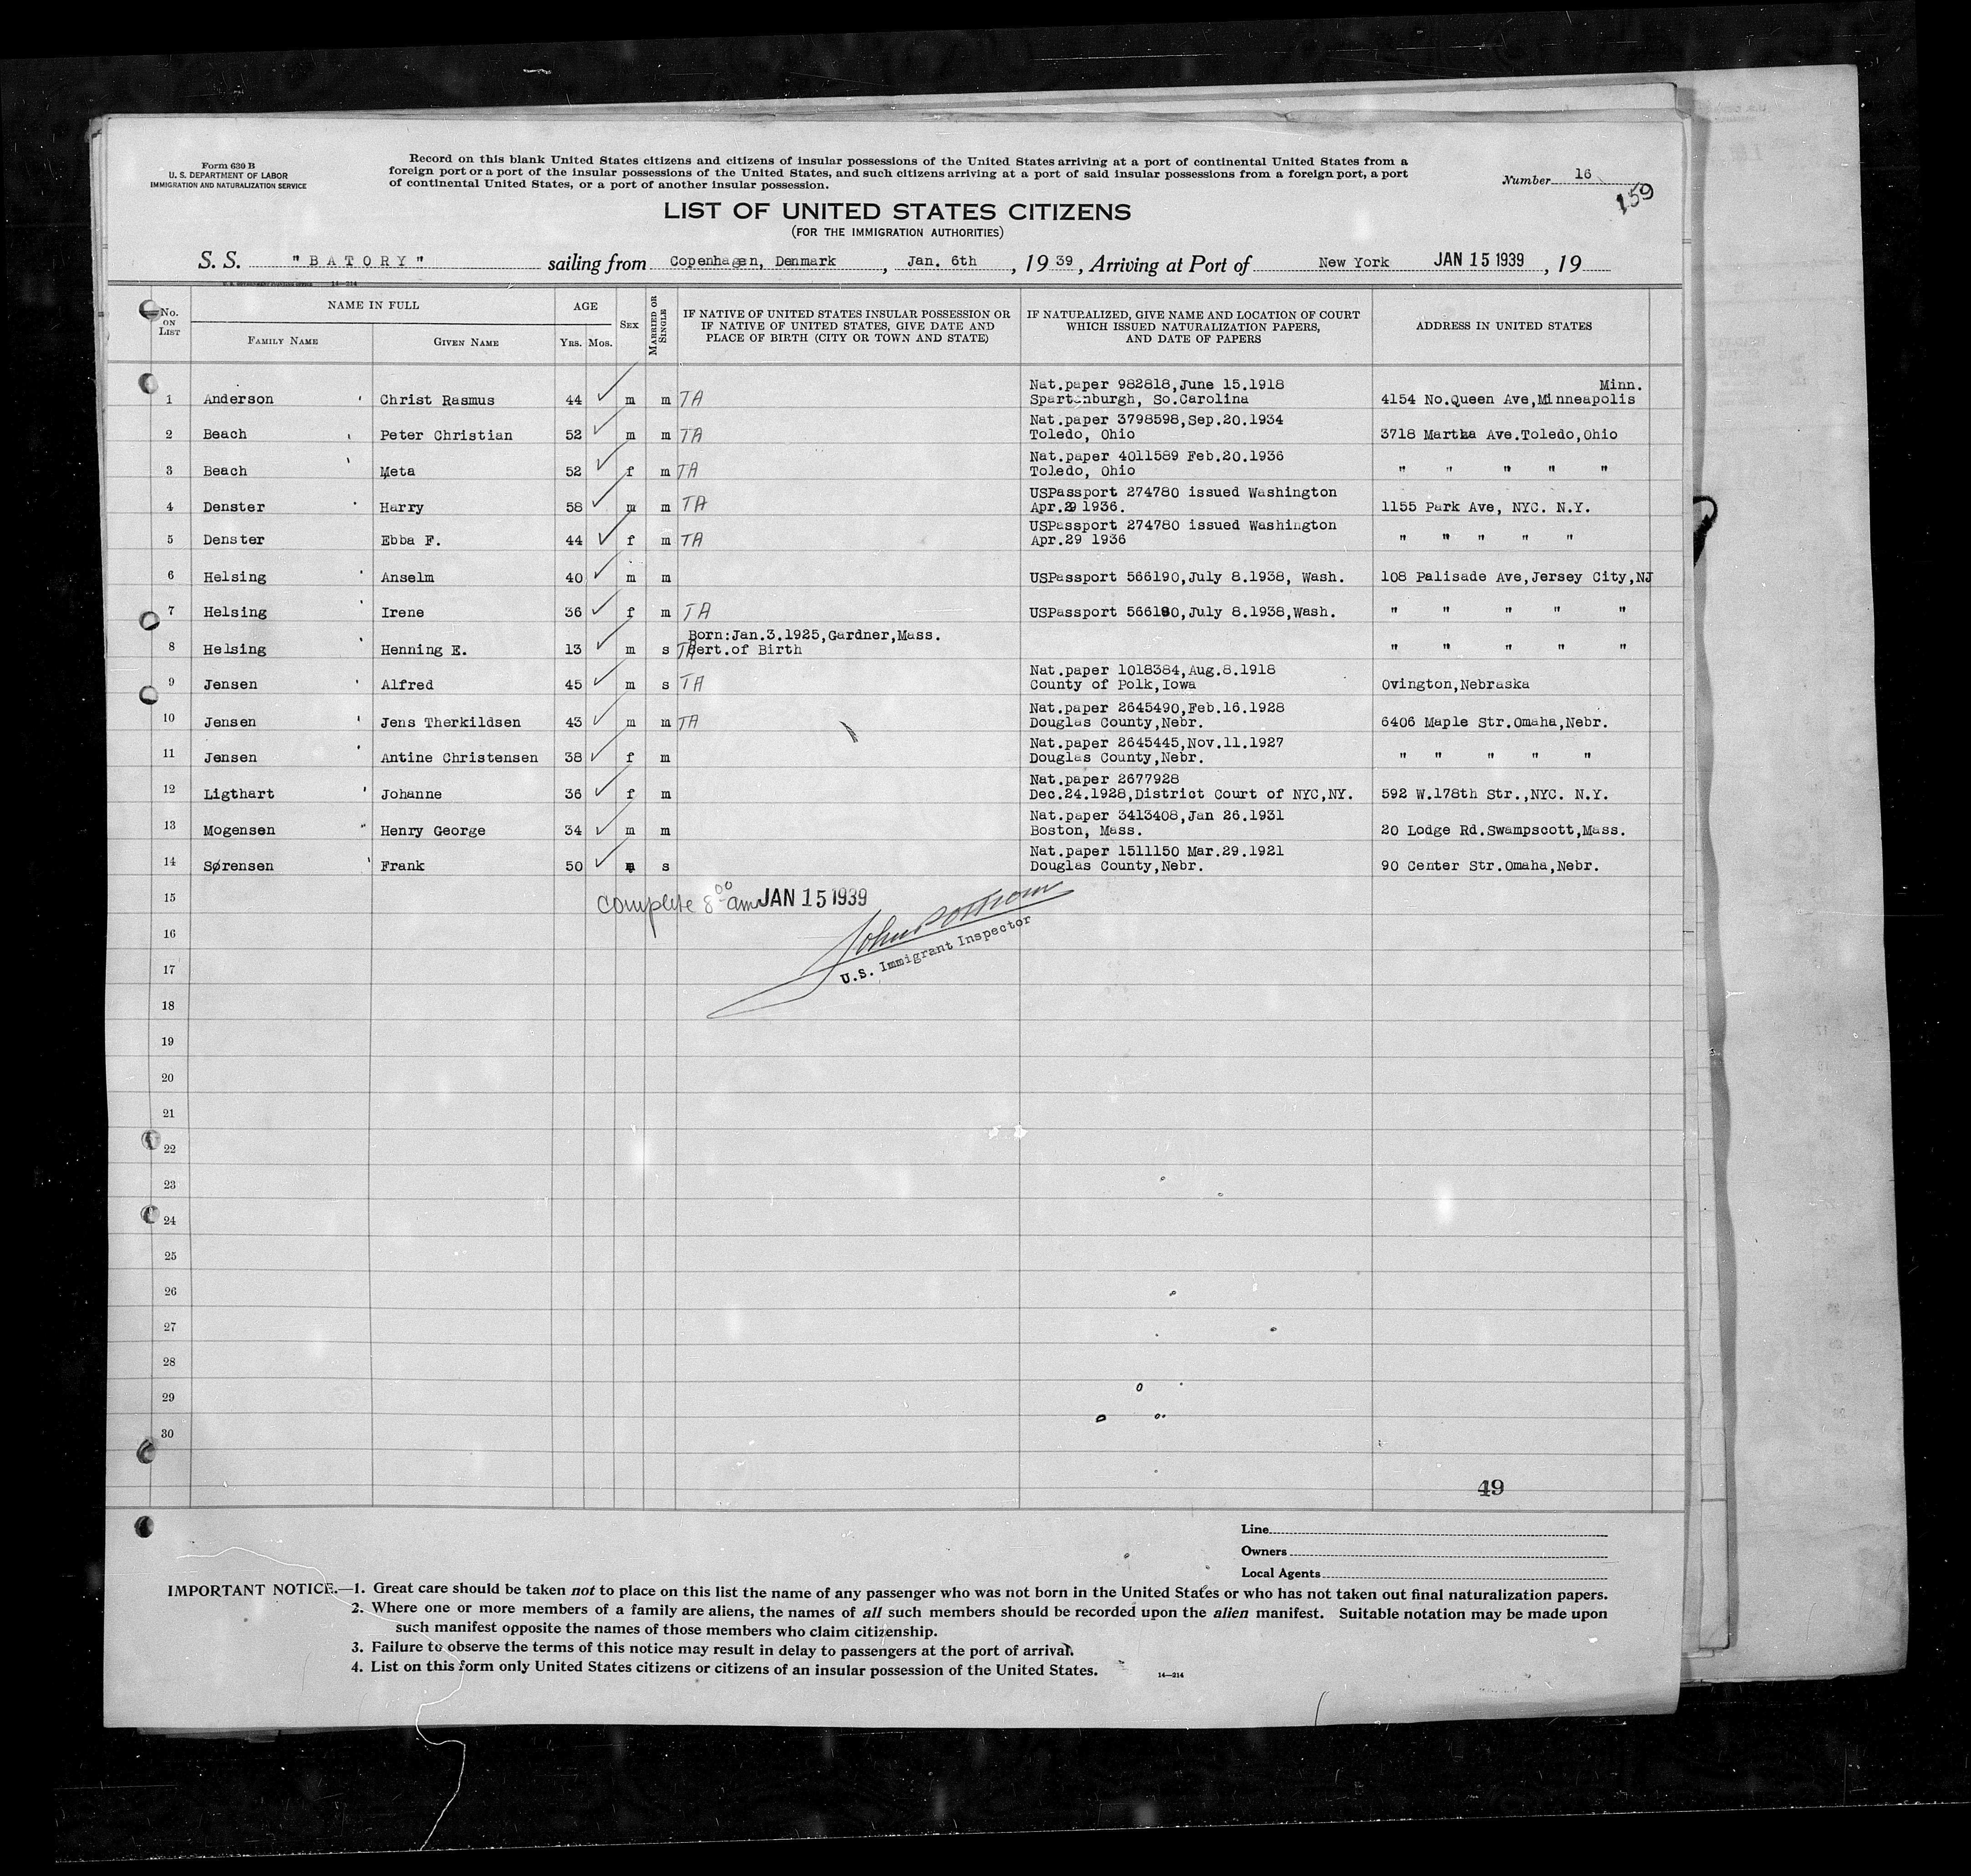 Form 630 B
U. S. DEPARTMENT OF LABOR
IMMIGRATION AND NATURALIZATION SERVICE
Record on this blank United States citizens and citizens of insular possessions of the United States arriving at a port of continental United States from a
foreign port or a port of the insular possessions of the United States, and such citizens arriving at a port of said insular possessions from a foreign port, a port
of continental United States, or a port of another insular possession.
Number 16
159
LIST OF UNITED STATES CITIZENS
(FOR THE IMMIGRATION AUTHORITIES)
S. S. "BATORY" sailing from Copenhagen, Denmark, Jan. 6th, 1939, Arriving at Port of New York JAN 15 1939, 19
No. ON LIST
NAME IN FULL
FAMILY NAME
GIVEN NAME
AGE
YRS. MOS.
SEX
MARRIED OR SINGLE
IF NATIVE OF UNITED STATES INSULAR POSSESSION OR
IF NATIVE OF UNITED STATES, GIVE DATE AND
PLACE OF BIRTH (CITY OR TOWN AND STATE)
IF NATURALIZED, GIVE NAME AND LOCATION OF COURT
WHICH ISSUED NATURALIZATION PAPERS,
AND DATE OF PAPERS
ADDRESS IN UNITED STATES
Nat.paper 982818,June 15.1918 Minn.
1 Anderson Christ Rasmus 44 m m TA Spartenburgh, So.Carolina 4154 No.Queen Ave,Minneapolis
Nat.paper 3798598,Sep.20.1934
2 Beach Peter Christian 52 m m TA Toledo, Ohio 3718 Martha Ave.Toledo,Ohio
Nat.paper 4011589 Feb.20.1936
3 Beach Meta 52 f m TA Toledo, Ohio " " " " "
USPassport 274780 issued Washington
4 Denster Harry 58 m m TA Apr.29 1936. 1155 Park Ave, NYC. N.Y.
USPassport 274780 issued Washington
5 Denster Ebba F. 44 f m TA Apr.29 1936 " " " " "
6 Helsing Anselm 40 m m USPassport 566190,July 8.1938, Wash. 108 Palisade Ave,Jersey City,NJ
7 Helsing Irene 36 f m TA USPassport 566190,July 8.1938,Wash. " " " " "
Born:Jan.3.1925,Gardner,Mass.
8 Helsing Henning E. 13 m s TA Cert.of Birth " " " " "
Nat.paper 1018384,Aug.8.1918
9 Jensen Alfred 45 m s TA County of Polk,Iowa Ovington,Nebraska
Nat.paper 2645490,Feb.16.1928
10 Jensen Jens Therkildsen 43 m m TA Douglas County,Nebr. 6406 Maple Str.Omaha,Nebr.
Nat.paper 2645445,Nov.11.1927
11 Jensen Antine Christensen 38 f m Douglas County,Nebr. " " " " "
Nat.paper 2677928
12 Ligthart Johanne 36 f m Dec.24.1928,District Court of NYC,NY. 592 W.178th Str.,NYC. N.Y.
Nat.paper 3413408,Jan 26.1931
13 Mogensen Henry George 34 m m Boston, Mass. 20 Lodge Rd.Swampscott,Mass.
Nat.paper 1511150 Mar.29.1921
14 Sørensen Frank 50 m s Douglas County,Nebr. 90 Center Str.Omaha,Nebr.
15
complete 8 00 am JAN 15 1939
16
U.S. Immigrant Inspector
17
18
19
20
21
22
23
24
25
26
27
28
29
30
49
Line
Owners
Local Agents
IMPORTANT NOTICE.—1. Great care should be taken not to place on this list the name of any passenger who was not born in the United States or who has not taken out final naturalization papers.
2. Where one or more members of a family are aliens, the names of all such members should be recorded upon the alien manifest. Suitable notation may be made upon
such manifest opposite the names of those members who claim citizenship.
3. Failure to observe the terms of this notice may result in delay to passengers at the port of arrival.
4. List on this form only United States citizens or citizens of an insular possession of the United States.
14—214